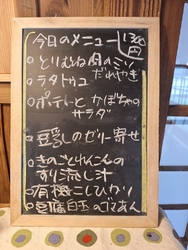 今日のメニュー
円
とりむね肉のミソ
だれやき
ラタトゥユ
ポテトとかぼちゃの
サラダ
豆乳のゼリー寄せ
きのことれんこんの
すり流し汁
有機こしひかり
豆腐白玉の